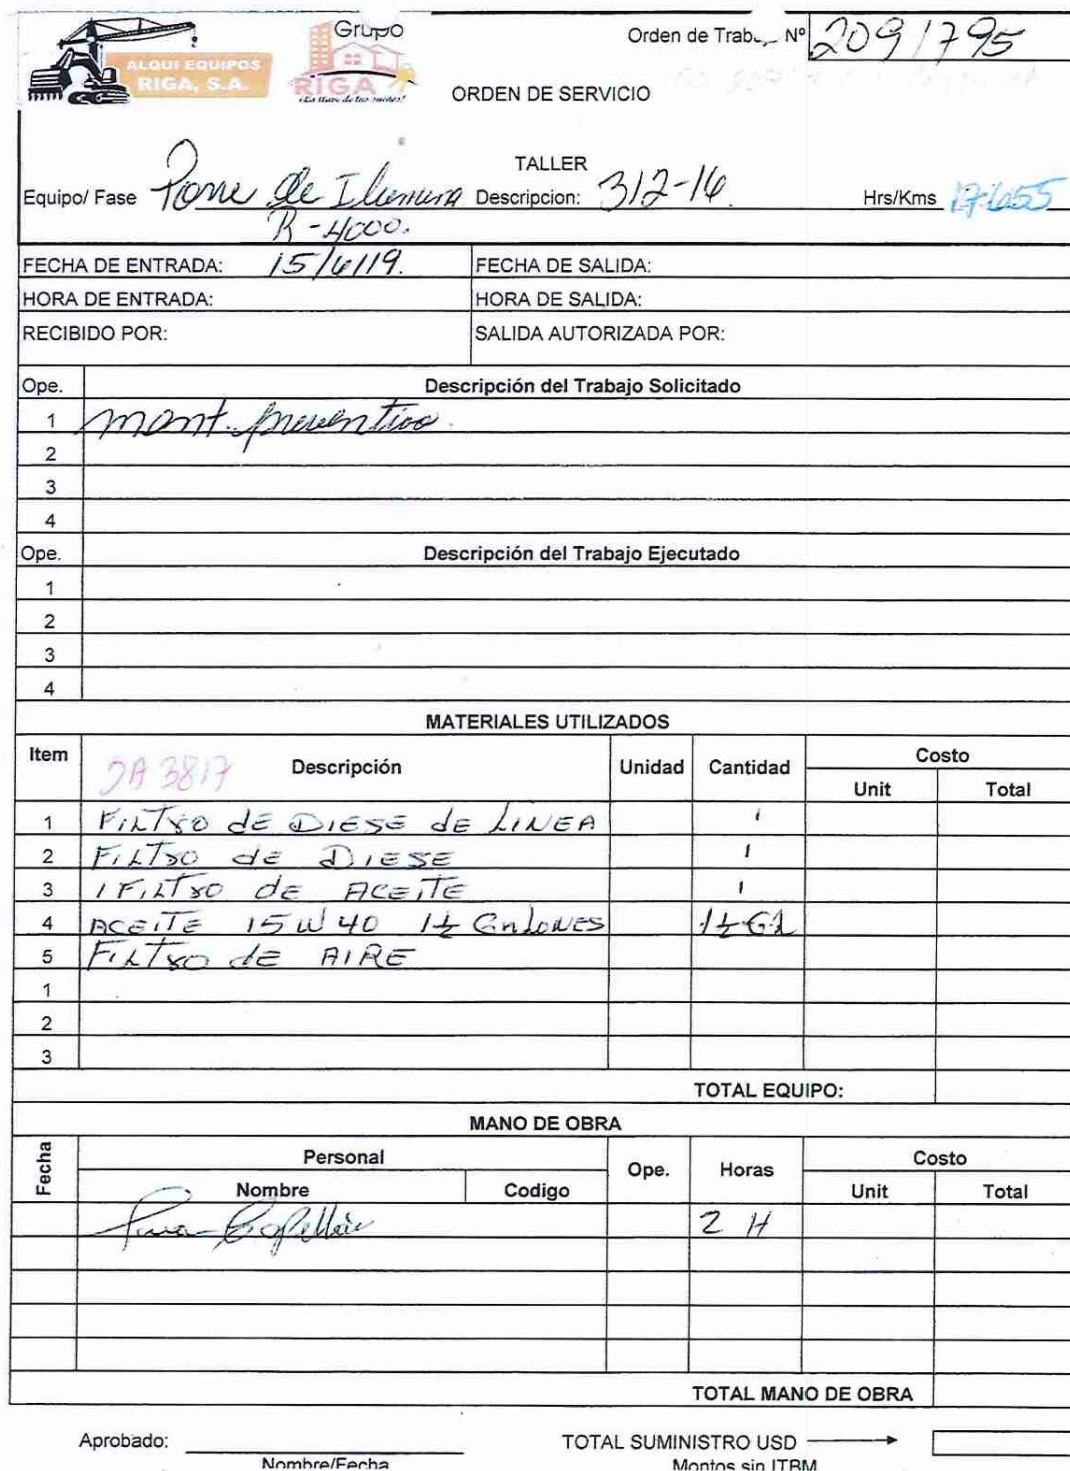 Grupo
ALQUI EQUIPOS
RIGA, S.A.
RIGA
Orden de Trab Nº 2091795
ORDEN DE SERVICIO
TALLER
Equipo/ Fase Torre de Ilumina Descripcion: 312-14. Hrs/Kms
R-4000.
FECHA DE ENTRADA: 15/6/19. FECHA DE SALIDA:
HORA DE ENTRADA: HORA DE SALIDA:
RECIBIDO POR: SALIDA AUTORIZADA POR:
Ope. Descripción del Trabajo Solicitado
1 mant. preventivo.
2
3
4
Ope. Descripción del Trabajo Ejecutado
1
2
3
4
MATERIALES UTILIZADOS
Item Descripción Unidad Cantidad Costo
3817
Unit Total
1 FILTRO dE DIESE dE LINEA 1
2 FILTRO dE DIESE 1
3 1 FILTRO dE ACEITE 1
4 ACEITE 15W40 1½ GALONES 1½ GL
5 FILTRO dE AIRE
1
2
3
TOTAL EQUIPO:
MANO DE OBRA
Fecha Personal Ope. Horas Costo
Nombre Codigo Unit Total
2 H
TOTAL MANO DE OBRA
Aprobado: TOTAL SUMINISTRO USD
Nombre/Fecha Montos sin ITBM